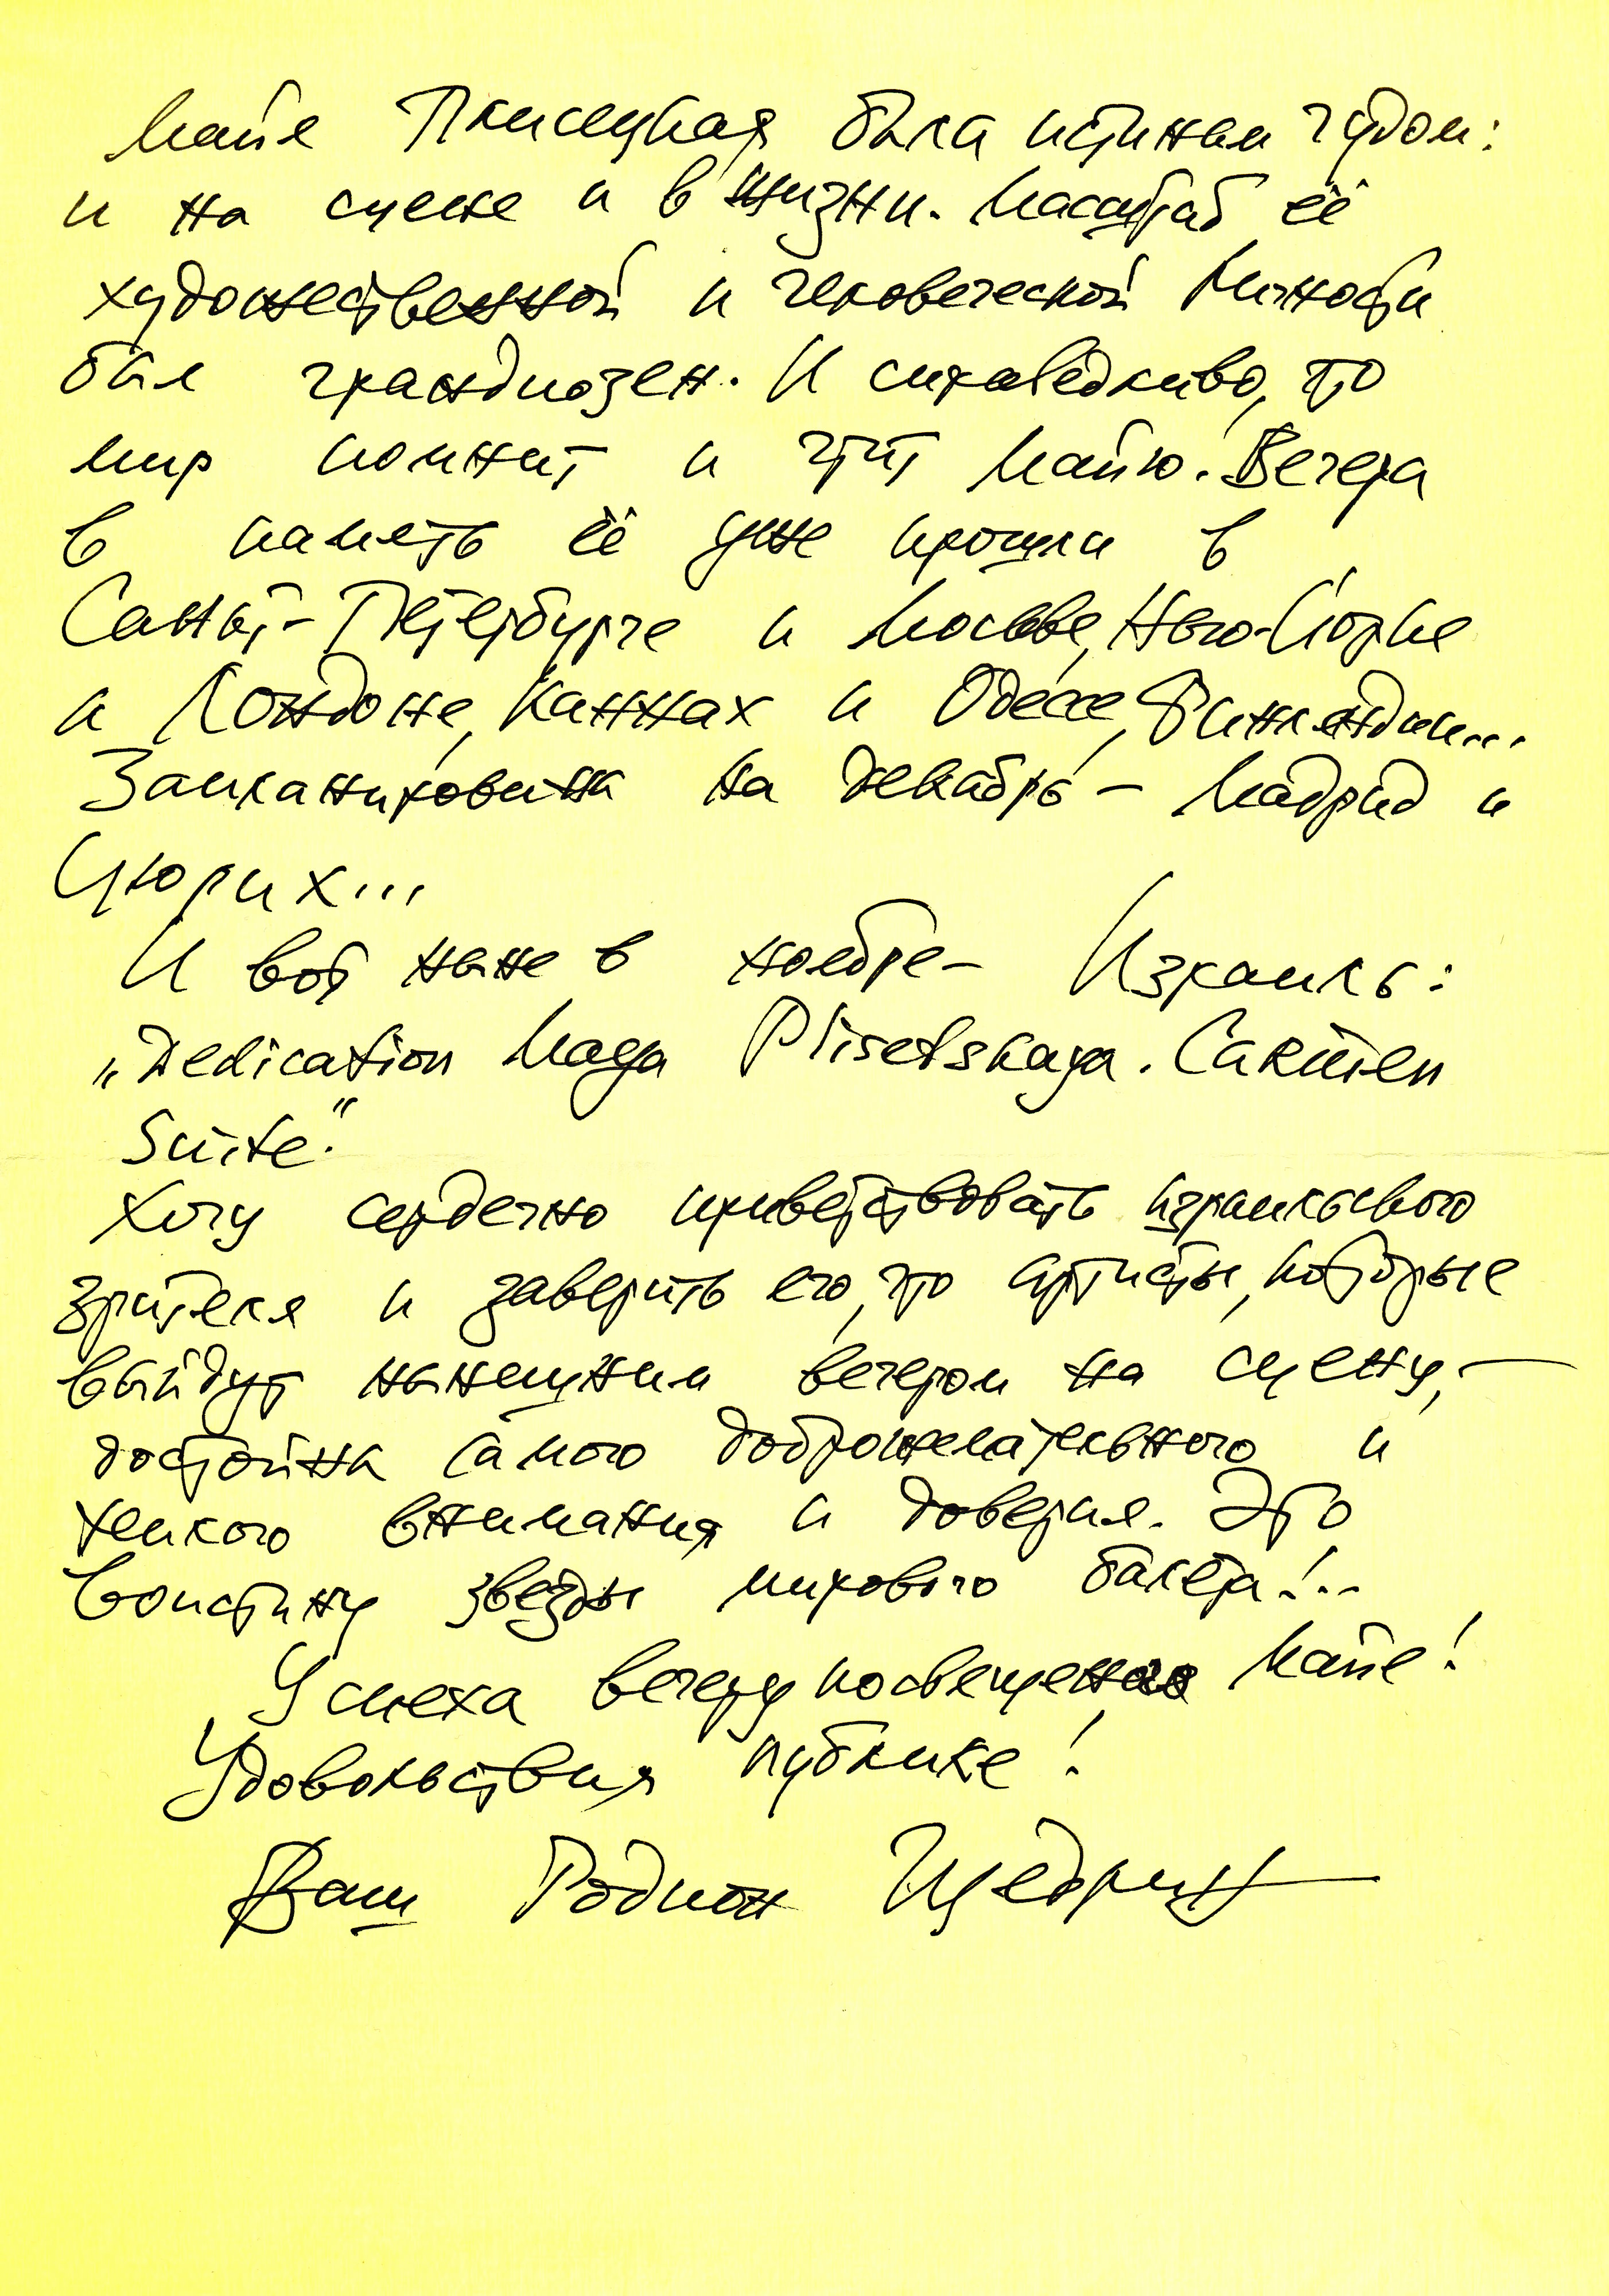 Майя Плисецкая была истиным чудом:
и на сцене и в жизни. Масштаб её
художественной и человеческой личности
был грандиозен. И справедливо, что
мир помнит и чтит Майю. Вечера
в память её уже прошли в
Санкт-Петербурге и Москве, Нью-Йорке
и Лондоне, Каннах и Одессе, Финляндии...
Запланированы на декабрь – Мадрид и
Цюрих...
И вот ныне в ноябре – Израиль:
„Dedication Maya Plisetskaya. Carmen
Suite."
Хочу сердечно приветствовать израильского
зрителя и заверить его, что артисты, которые
выйдут нынешним вечером на сцену, –
достойны самого доброжелательного и
теплого внимания и доверия. Это
воистину звезды мирового балета!..
Успеха вечеру посвещеного Майе!
Удовольствия публике!
Ваш Родион Щедрин